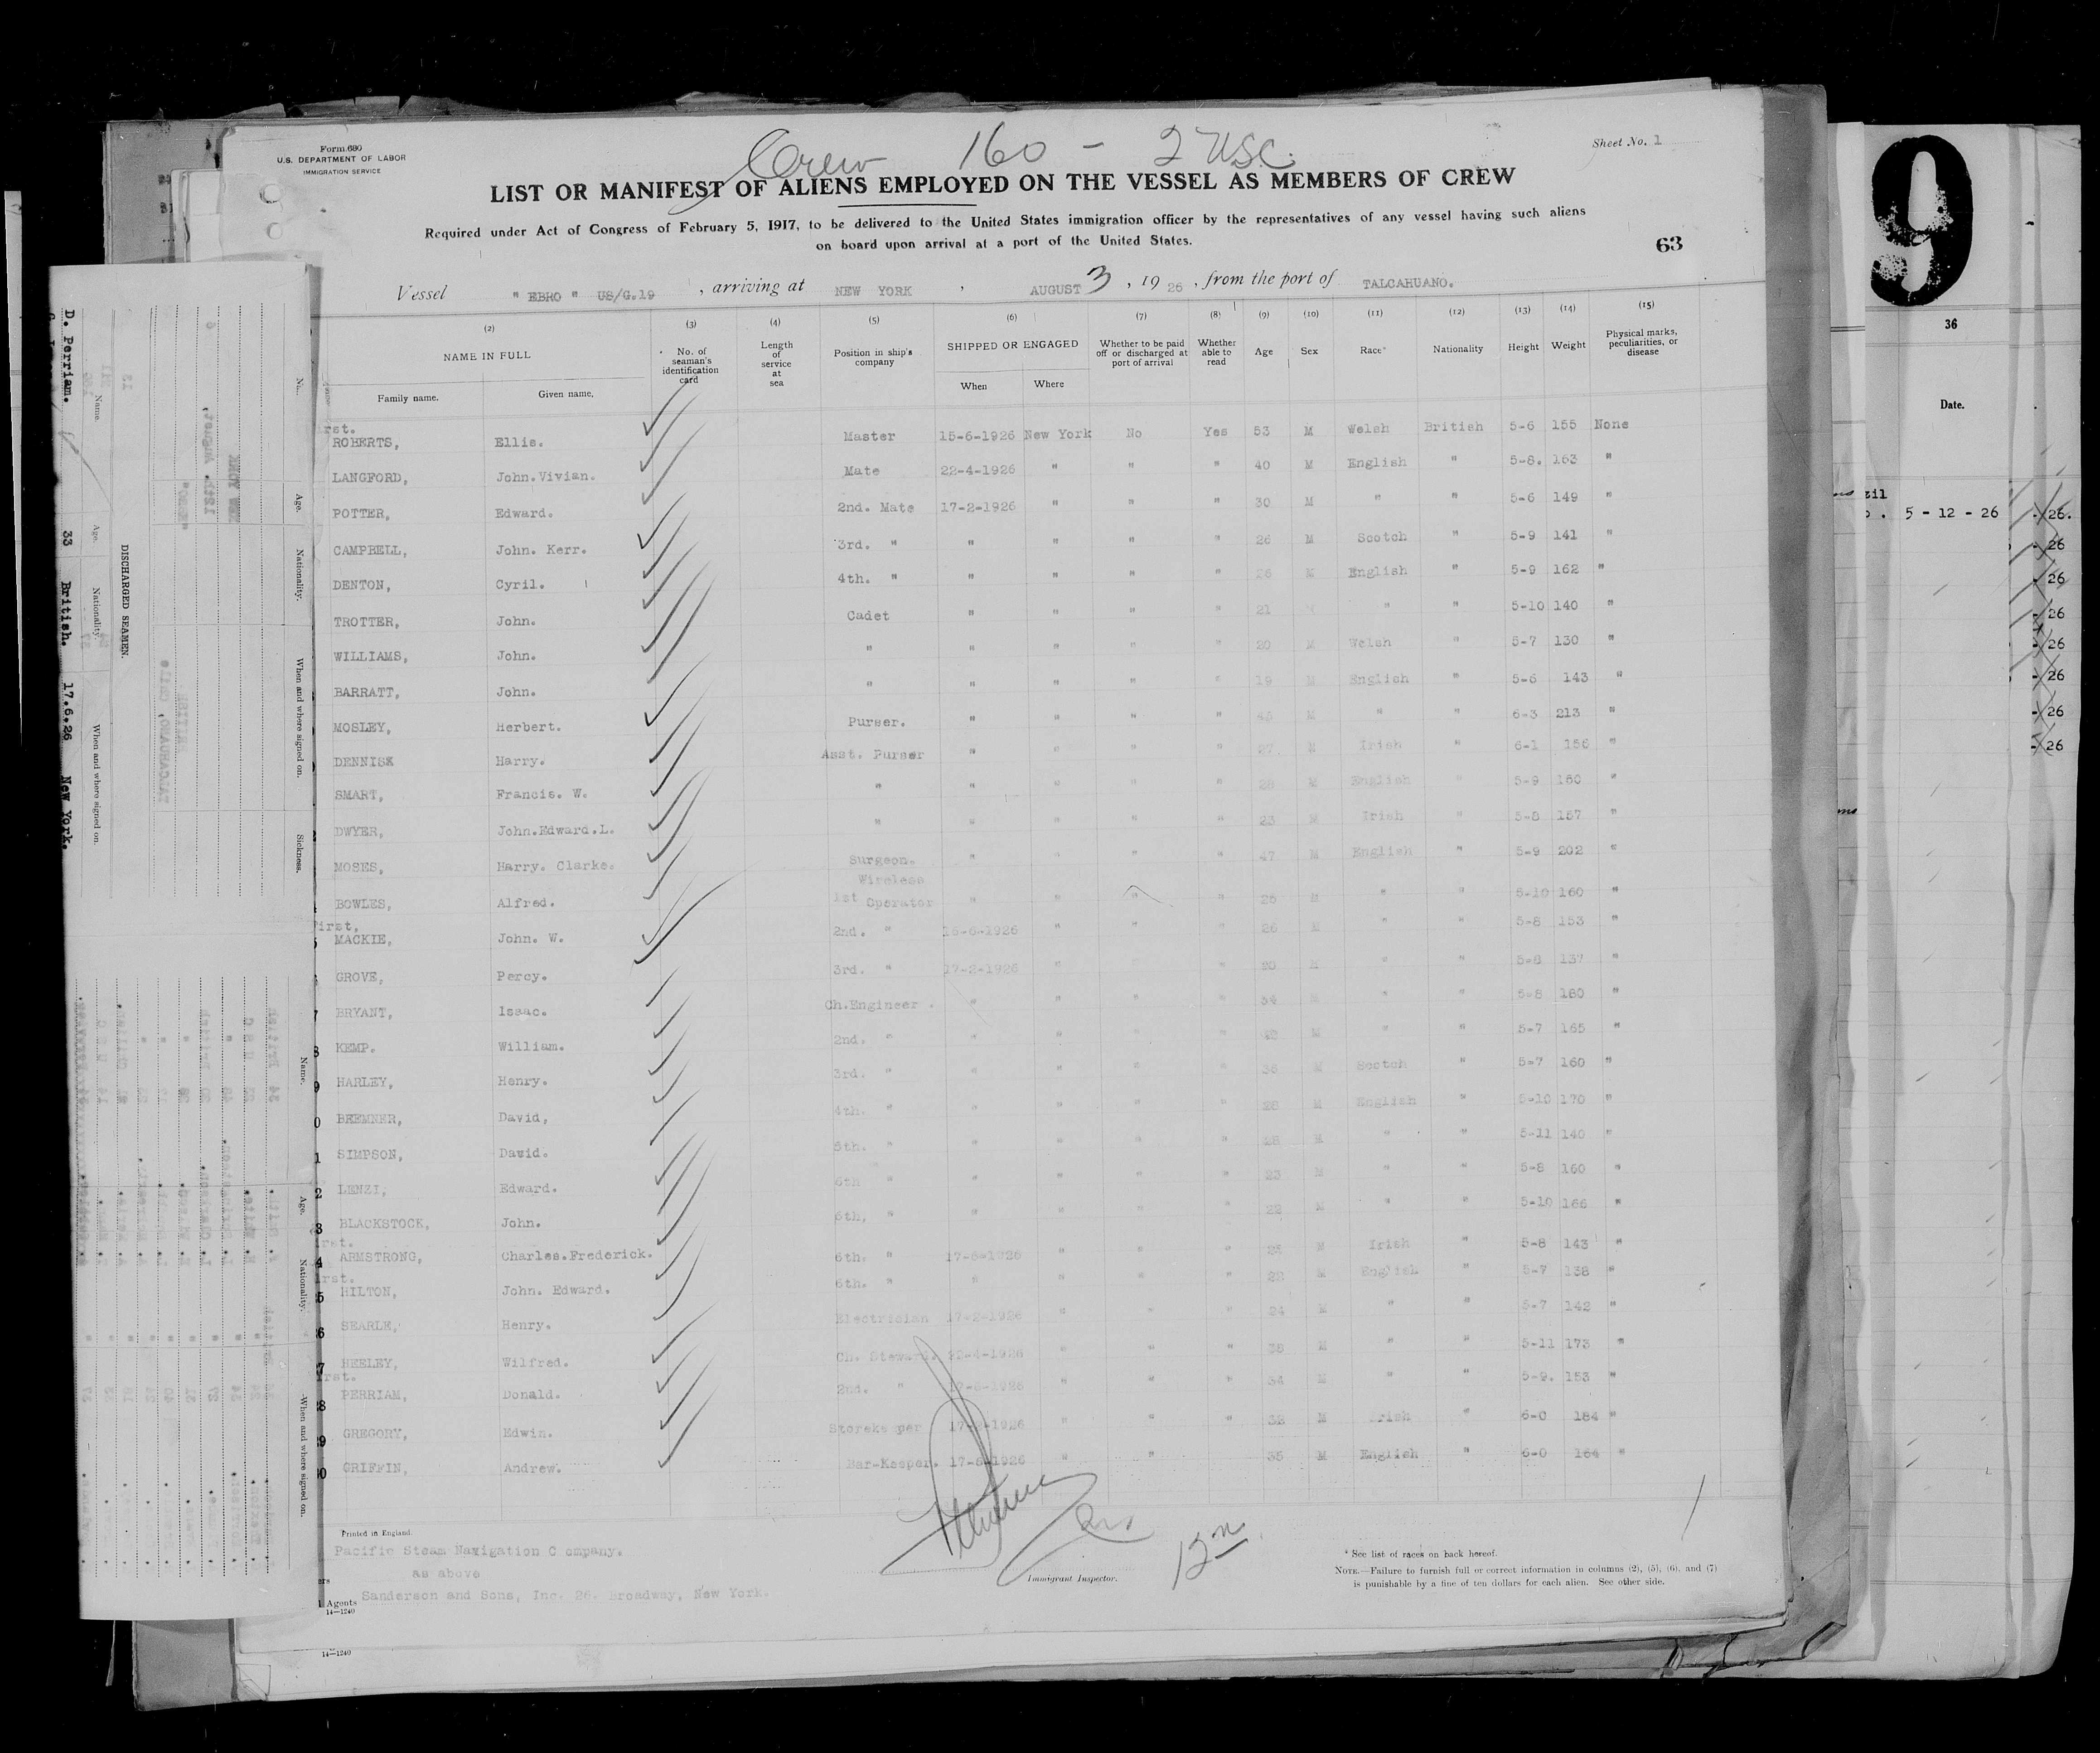 Form 680
U.S. DEPARTMENT OF LABOR
IMMIGRATION SERVICE
Crew 160 - 2 USC.
Sheet No. 1
LIST OR MANIFEST OF ALIENS EMPLOYED ON THE VESSEL AS MEMBERS OF CREW
Required under Act of Congress of February 5, 1917, to be delivered to the United States immigration officer by the representatives of any vessel having such aliens
on board upon arrival at a port of the United States.
63
Vessel " EBRO " US/G.19 , arriving at NEW YORK , AUGUST 3 , 19 26 , from the port of TALCAHUANO.
(2) (3) (4) (5) (6) (7) (8) (9) (10) (11) (12) (13) (14) (15)
NAME IN FULL
Family name. Given name.
No. of seaman's identification card
Length of service at sea
Position in ship's company
SHIPPED OR ENGAGED
When Where
Whether to be paid off or discharged at port of arrival
Whether able to read
Age
Sex
Race*
Nationality
Height
Weight
Physical marks, peculiarities, or disease
rst.
ROBERTS, Ellis. Master 15-6-1926 New York No Yes 53 M Welsh British 5-6 155 None
LANGFORD, John.Vivian. Mate 22-4-1926 " " " 40 M English " 5-8. 153 "
POTTER, Edward. 2nd. Mate 17-2-1926 " " " 30 M " " 5-6 149 "
CAMPBELL, John. Kerr. 3rd. " " " " " 26 M Scotch " 5-9 141 "
DENTON, Cyril. 4th. " " " " " 26 M English " 5-9 162 "
TROTTER, John. Cadet " " " " 21 " " 5-10 140 "
WILLIAMS, John. " " " " " 20 M Welsh " 5-7 130 "
BARRATT, John. " " " " " 19 M English " 5-6 143 "
MOSLEY, Herbert. Purser. " " " " M " " 6-3 213 "
DENNISK Harry. Asst. Purser " " " " 27 M Irish " 6-1 156 "
SMART, Francis. W. " " " " " 28 M English " 5-9 160 "
DWYER, John.Edward.L. " " " " " 23 M Irish " 5-8 157 "
MOSES, Harry. Clarke. Surgeon. " " " " 47 M English " 5-9 202 "
BOWLES, Alfred. 1st Wireless Operator " " " " 26 M " " 5-10 160 "
First,
MACKIE, John. W. 2nd. " 16-6-1926 " " " 26 M " " 5-8 153 "
GROVE, Percy. 3rd. " 17-2-1926 " " " 20 M " " 5-8 137 "
BRYANT, Isaac. Ch.Engineer . " " " " 54 M " " 5-8 180 "
KEMP. William. 2nd. " " " " " M " " 5-7 165 "
HARLEY, Henry. 3rd. " " " " " 36 M Scotch " 5-7 160 "
BREMNER, David, 4th. " " " " " 28 M English " 5-10 170 "
SIMPSON, David. 5th. " " " " " M " " 5-11 140 "
LENZI, Edward. 6th " " " " " 23 M " " 5-8 160 "
BLACKSTOCK, John. 6th, " " " " " 22 M " " 5-10 166 "
rst.
ARMSTRONG, Charles.Frederick. 6th. " 17-6-1926 " " " 25 M Irish " 5-8 143 "
irst.
HILTON, John. Edward. 6th. " " " " " 22 M English " 5-7 138 "
SEARLE, Henry. Electrician 17-2-1926 " " " 24 M " " 5-7 142 "
HEELEY, Wilfred. Ch. Steward. 22-4-1926 " " " 38 M " " 5-11 173 "
irst.
PERRIAM, Donald. 2nd. " 17-6-1926 " " " 34 M " " 5-9. 153 "
GREGORY, Edwin. Storekeeper 17-2-1926 " " " 32 M Irish " 6-0 184 "
GRIFFIN, Andrew. Bar-Keeper. 17-6-1926 " " 35 M English " 6-0 164 "
Printed in England.
Pacific Steam Navigation C ompany.
as above
Agents Sanderson and Sons, Inc. 26. Broadway, New York.
14—1240
Immigrant Inspector.
* See list of races on back hereof.
NOTE.—Failure to furnish full or correct information in columns (2), (5), (6), and (7)
is punishable by a fine of ten dollars for each alien. See other side.
14—1240
D. Perriam. 33 British. 17.6.26 New York.
Name. Age. Nationality. When and where signed on.
DISCHARGED SEAMEN.
No. Age. Nationality. When and where signed on. Sickness.
Name. Age. Nationality. When and where signed on.
9
36
Date.
zil
5 - 12 - 26
26.
26
26
26
26
26
26
26